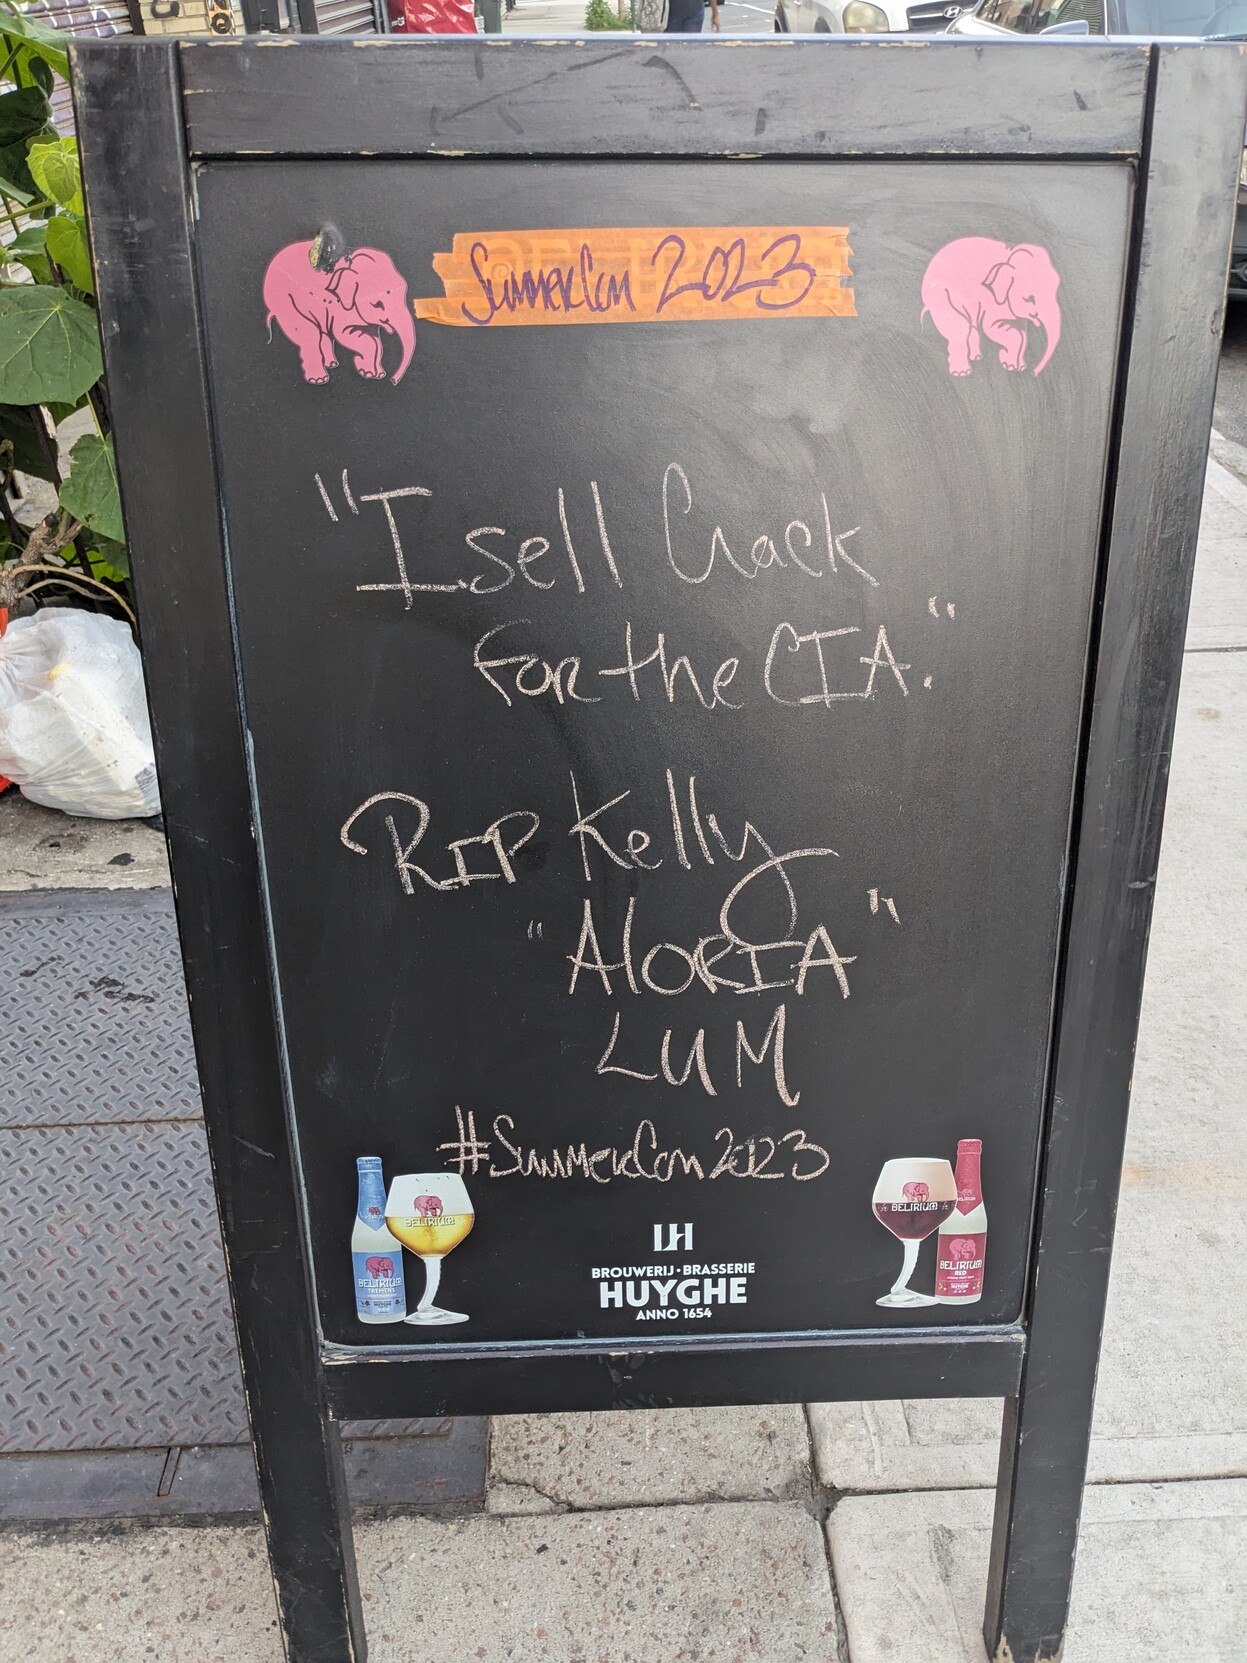 SummerCon 2023
"I sell Crack
for the CIA."
RIP Kelly
"Aloria"
LUM
#SummerCon2023
DELIRIUM
DELIRIUM
TREMENS
HUYGHE
LH
BROUWERIJ · BRASSERIE
HUYGHE
ANNO 1654
DELIRIUM
DELIRIUM
RED
HUYGHE